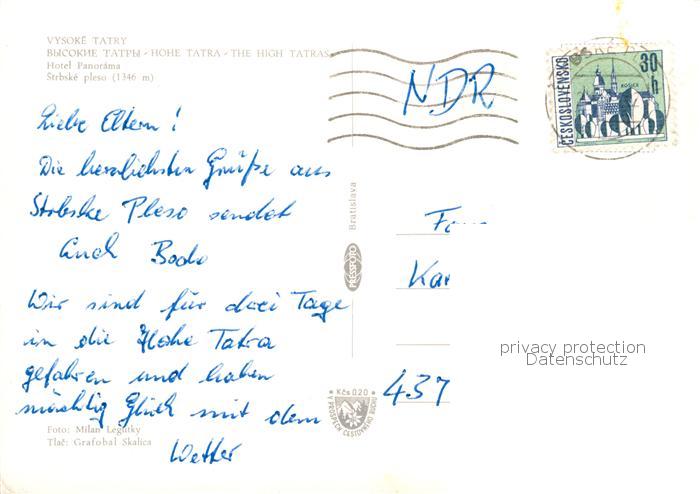 VYSOKÉ TATRY
ВЫСОКИЕ ТАТРЫ - HOHE TATRA - THE HIGH TATRAS
Hotel Panoráma
Štrbské pleso (1346 m)
Liebe Eltern!
Die herzlichsten Grüße aus
Strbske Pleso sendet
Euch Bodo
Wir sind für drei Tage
in die Hohe Tatra
gefahren und haben
mächtig Glück mit dem
Wetter
Foto: Milan Legutky
Tlač: Grafobal Skalica
Bratislava
PRESSFOTO
Kčs 0,20
V PROSPECH CESTOVNÉHO RUCHU
NDR
ČESKOSLOVENSKO
30 h
KOŠICE
Fa
Kar
437
privacy protection
Datenschutz